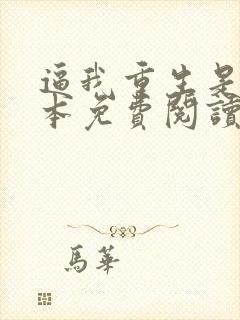 逼我重生是
本免費閱讀
馬華